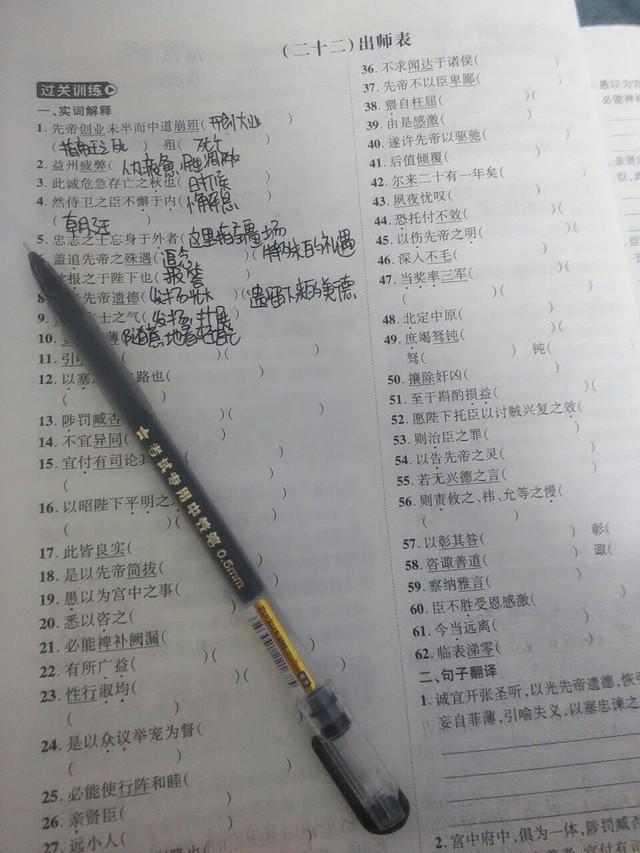 （二十二）出师表
过关训练
一、实词解释
1. 先帝创业未半而中道崩殂( 开创大业
( 指帝王之死 ) 殂( 死亡
2. 益州疲弊(
3. 此诚危急存亡之秋也( 时候
4. 然侍卫之臣不懈于内( 懈怠
( 朝廷
5. 忠志之士忘身于外者( 这里指疆场
盖追先帝之殊遇( 追念 )( 特殊的礼遇
报之于陛下也( 报答
8. 先帝遗德( 发扬光大 )( 遗留下来的美德
9. 士之气(
10. 薄( 随意地看轻
11. 引
12. 以塞 路也(
( )
13. 陟罚臧否
14. 不宜异同(
15. 宜付有司论
( )
16. 以昭陛下平明之
( )( )
17. 此皆良实(
18. 是以先帝简拔(
19. 愚以为宫中之事(
20. 悉以咨之(
21. 必能裨补阙漏(
22. 有所广益( )(
23. 性行淑均( )(
( )
24. 是以众议举宠为督(
( )
25. 必能使行阵和睦(
26. 亲贤臣( )
27. 远小人(
36. 不求闻达于诸侯( )
37. 先帝不以臣卑鄙( )
38. 猥自枉屈( )(
39. 由是感激( )
40. 遂许先帝以驱驰( )
41. 后值倾覆( )
42. 尔来二十有一年矣( )
43. 夙夜忧叹( )
44. 恐托付不效( )
45. 以伤先帝之明( )
46. 深入不毛( )
47. 当奖率三军( )(
( )
48. 北定中原( )
49. 庶竭驽钝( )(
驽( ) 钝(
50. 攘除奸凶( )
51. 至于斟酌损益( )
52. 愿陛下托臣以讨贼兴复之效(
53. 则治臣之罪( )
54. 以告先帝之灵( )
55. 若无兴德之言( )
56. 则责攸之、祎、允等之慢(
( )
57. 以彰其咎( ) 彰(
58. 咨诹善道( ) 诹(
59. 察纳雅言( )
60. 臣不胜受恩感激( )
61. 今当远离( )
62. 临表涕零( )
二、句子翻译
1. 诚宜开张圣听，以光先帝遗德，恢
妄自菲薄，引喻失义，以塞忠谏之
2. 宫中府中，俱为一体，陟罚臧
考试专用中性笔 0.5mm